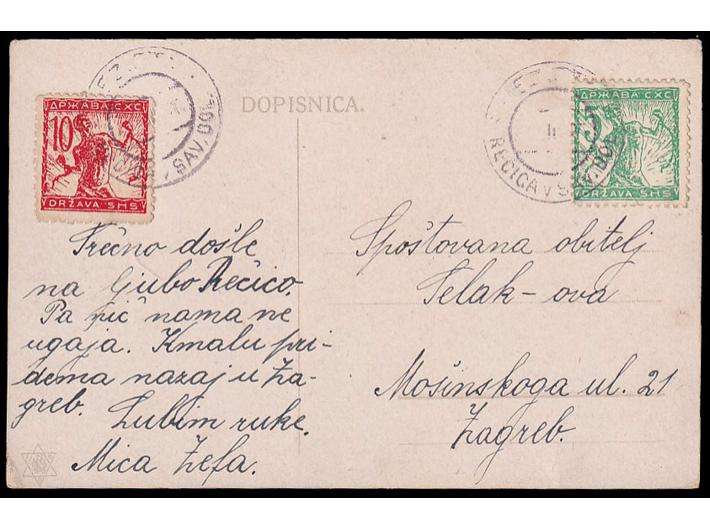 DOPISNICA.
ДРЖАВА СХС
10
DRŽAVA SHS
REČICA V SAV. DOL.
ДРЖАВА СХС
5
DRŽAVA SHS
Srečno došle
na ljubo Rečico.
Pa nič nama ne
ugaja. Kmalu pri-
dema nazaj u Za-
greb. Lubim ruke.
Mica Zefa.
Spoštovana obitelj
Selak-ova
Mošinskoga ul. 21
Zagreb.